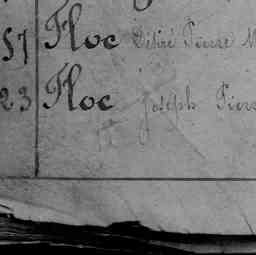 57 Floc Désiré Pierre M
23 Floc Joseph Pierr